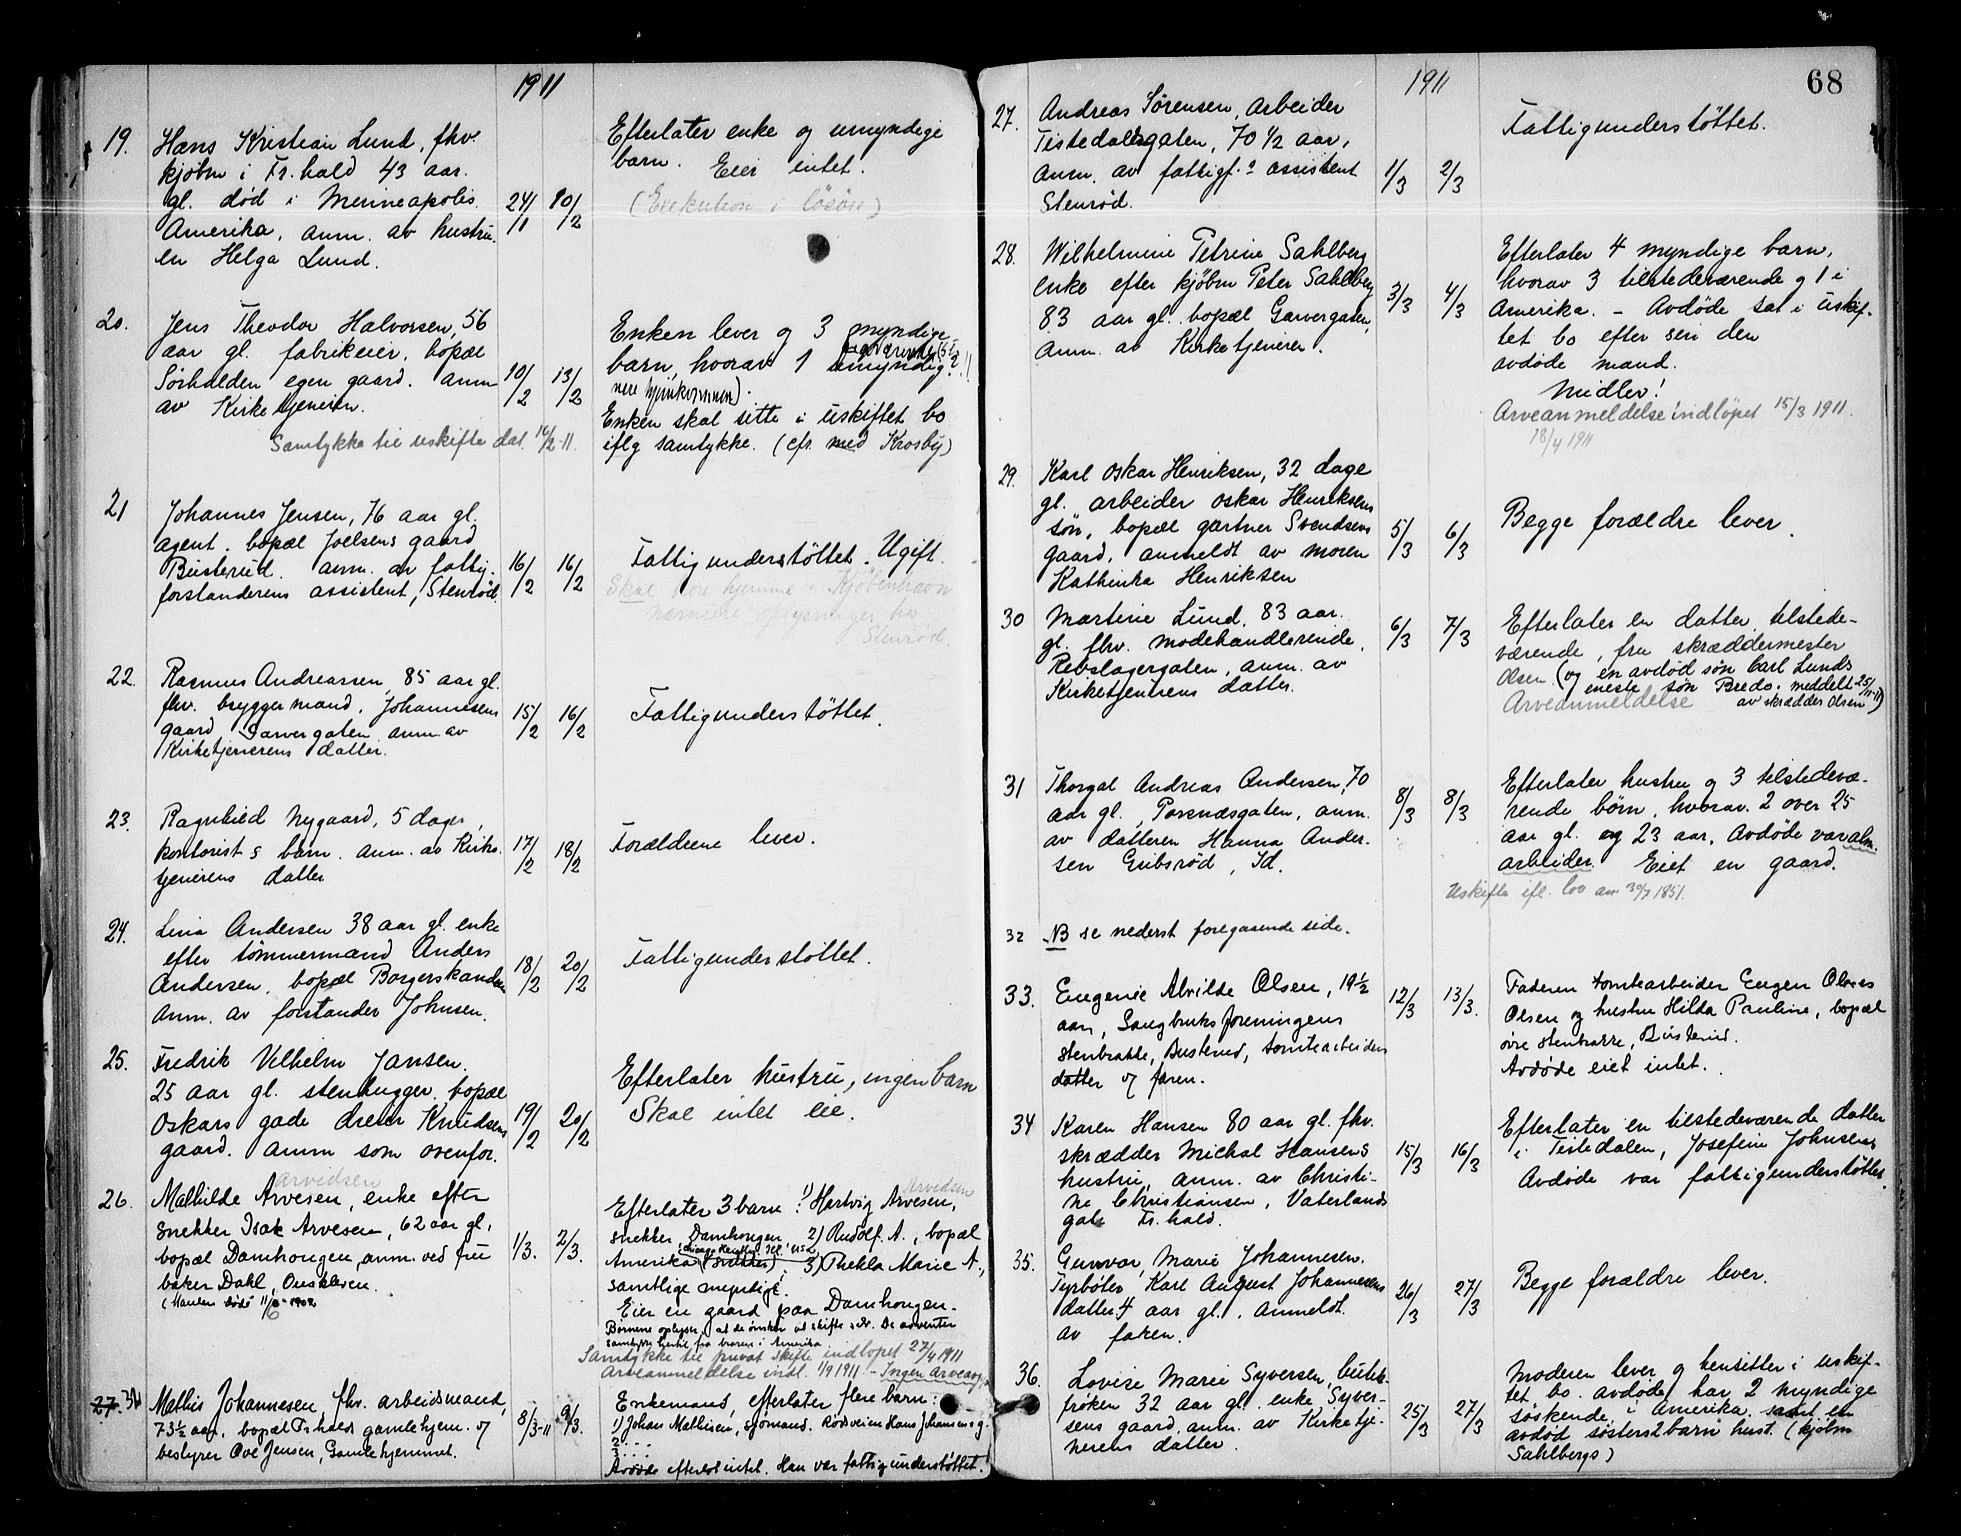 1911
19. Hans Kristian Lund, fhv.
kjøbm i Fr.hald 43 aar.
gl. død i Minneapolis
Amerika. anm. av hustru-
en Helga Lund.
24/1 10/2
Efterlater enke og umyndige
barn. Eier intet.
(Exekution i løsøre)
20. Jens Theodor Halvorsen, 56
aar gl. fabrikeier, bopæl
Sørhalden egen gaard. anm
av Kirketjeneren.
Samtykke til uskifte dat. 16/2-11.
10/2 13/2
Enken lever og 3 myndige
barn, hvorav 1 umyndig.
Enken skal sitte i uskiftet bo
iflg samtykke. (cfr. med Krosby)
21 Johannes Jensen, 76 aar gl.
agent. bopæl Joelsens gaard
Busterud. anm. av fattig-
forstanderens assistent, Stenrød.
16/2 16/2
Fattigunderstøttet. Ugift.
Skal være hjemme i Kjøbenhavn
nærmere oplysninger hos
Stenrød.
22. Rasmus Andreassen, 85 aar gl.
fhv. bryggermand, Johannesens
gaard Garvergaten anm. av
Kirketjenerens datter.
15/2 16/2
Fattigunderstøttet.
23. Ragnhild Nygaard, 5 dager,
kontorist s barn. anm. av Kirke-
tjenerens datter
17/2 18/2
Forældrene lever.
24. Lina Andersen 38 aar gl. enke
efter tømmermand Anders
Andersen, bopæl Borgerskansen
anm. av forstander Johnsen.
18/2 20/2
Fattigunderstøttet.
25. Fredrik Vilhelm Jansen.
25 aar gl. stenhugger, bopæl
Oskars gade dreier Knudsens
gaard. anm som ovenfor.
19/2 20/2
Efterlater hustru, ingen barn
Skal intet eie.
Arvidsen
26. Mathilde Arvesen, enke efter
snekker Isak Arvesen, 62 aar gl,
bopæl Damhougen, anm. ved fru
baker Dahl, Ouskleven.
(Manden døde 11/6-1902
1/3. 2/3.
Arvidsen
Efterlater 3 barn: 1) Hartvig Arvesen,
snekker, Damhougen 2) Rudolf A., bopæl
Amerika (snekker), 3) Thekla Marie A.,
samtlige myndige.
Eier en gaard paa Damhougen.
Børnene oplyser, at de ønsker at skifte selv. De avventer
samtykke hertil fra broren i Amerika
Samtykke til privat skifte indløpet 27/4 1911
Arveanmeldelse indl. 1/9 1911 - Ingen arveavg.
27. 32 Mathis Johannesen, fhv. arbeidsmand,
73½ aar, bopæl Fr.halds gamlehjem. v/
bestyrer Ove Jensen, Gamlehjemmet.
8/3-11 9/3.
Enkemand, efterlater flere barn:
1) Johan Mathisen, sjømand. Rødsveien Hans Johansens g.
2. . . .
3. . . .
Avdøde efterlot intet. Han var fattigunderstøttet.
1911
68
27. Andreas Sørensen, Arbeider
Tistedalsgaten, 70 1/2 aar,
Anm. av fattigf.s assistent
Stenrød.
1/3 2/3
Fattigunderstøttet.
28. Wilhelmine Petrine Sahlberg
enke efter kjøbm Peter Sahlberg
83 aar gl. bopæl Garvergaten,
Anm. av Kirketjeneren.
3/3 4/3
Efterlater 4 myndige barn,
hvorav 3 tilstedeværende og 1 i
Amerika. - Avdøde sat i uskif-
tet bo efter sin den
avdøde mand.
Midler!
Arveanmeldelse indløpet 15/3 1911.
18/4 1911
29. Karl Oskar Henriksen, 32 dage
gl. arbeider Oskar Henriksens
søn, bopæl gartner Svendsens
gaard, anmeldt av moren
Kathinka Henriksen
5/3 6/3
Begge forældre lever.
30 Martine Lund, 83 aar.
gl. fhv. modehandlerinde,
Rebslagergaten, anm. av
Kirketjenerens datter.
6/3 7/3
Efterlater en datter, tilstede-
værende, fru skræddermester
Olsen. (og en avdød søn Carl Lunds
eneste søn Bredo, meddelt 25/11-11
Arveanmeldelse av skrædder Olsen)
31 Thorgal Andreas Andersen, 70
aar gl., Porsnæsgaten, anm.
av datteren Hanna Ander-
sen Gribsrød, Id.
8/3 8/3
Efterlater hustru og 3 tilstedevæ-
rende børn, hvorav 2 over 25
aar gl. og 23 aar. Avdøde var alm.
arbeider. Eiet en gaard.
Uskifte ifl. lov av 30/7 1851.
32 NB se nederst foregaaende side.
33. Eugenie Alvilde Olsen, 19½
aar, Saugbruksforeningens
stenbrakke, Busterud, tomtearbeiders
datter v/ faren.
12/3 13/3.
Faderen tomtearbeider Eugen Olaves
Olsen og hustru Hilda Pauline, bopæl
øvre stenbrakke, Busterud.
Avdøde eiet intet.
34 Karen Hansen 80 aar gl. fhv.
skrædder Michal Hansens
hustru, anm. av Christi-
ne Christiansen, Vaterlands
gate Fr.hald.
15/3 16/3
Efterlater en tilstedeværende datter
i Tistedalen, Josefine Johnsens
Avdøde var fattigunderstøttet.
35. Gunvor Marie Johannesen.
Fyrbøter Karl August Johannesens
datter 4 aar gl. Anmeldt.
av faren.
26/3 27/3
Begge forældre lever.
36. Lovise Marie Syversen, butik-
frøken 32 aar gl. enke Syver-
sens gaard, anm. av Kirketje-
nerens datter.
25/3 27/3
Moderen lever og hensitter i uskif-
tet bo. avdøde har 2 myndige
søskende i Amerika samt en
avdød søsters 2 barn hust. (kjøbm
Sahlbergs)